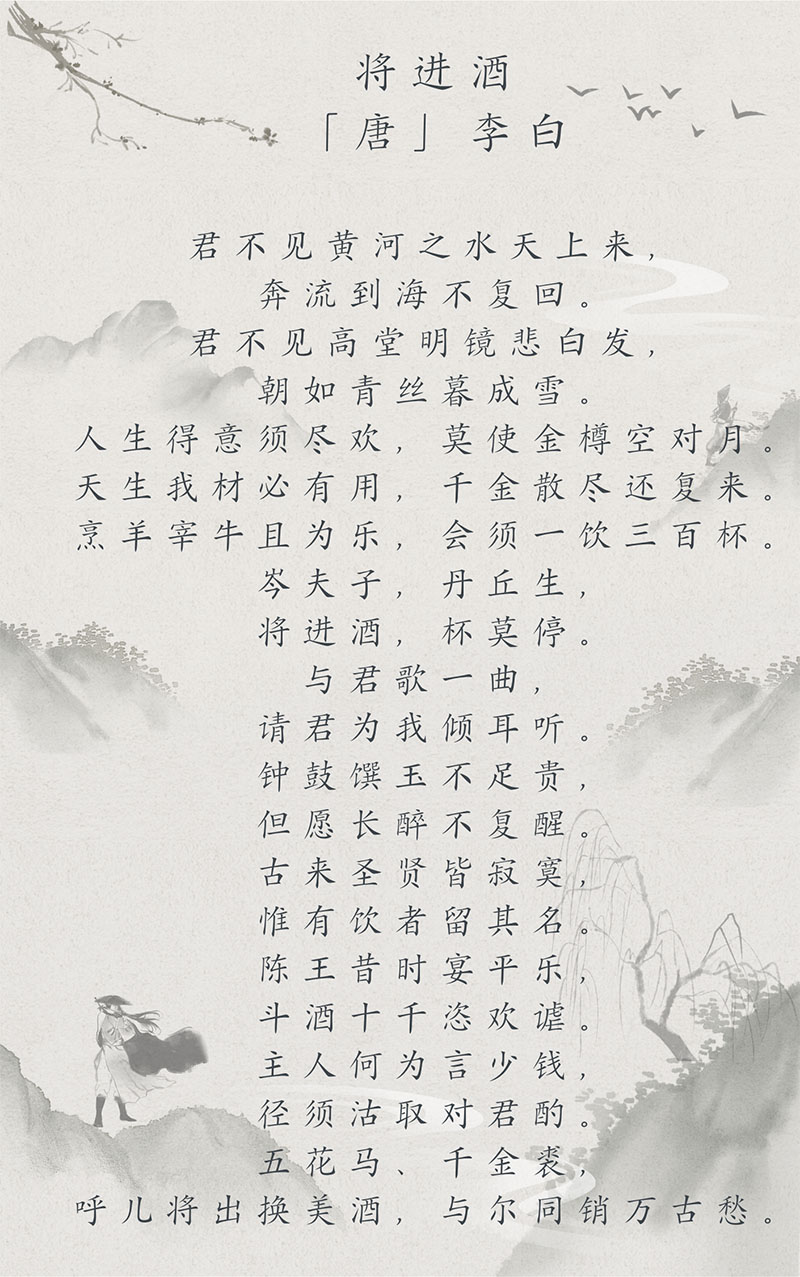 将进酒
「唐」李白
君不见黄河之水天上来，
奔流到海不复回。
君不见高堂明镜悲白发，
朝如青丝暮成雪。
人生得意须尽欢，莫使金樽空对月。
天生我材必有用，千金散尽还复来。
烹羊宰牛且为乐，会须一饮三百杯。
岑夫子，丹丘生，
将进酒，杯莫停。
与君歌一曲，
请君为我倾耳听。
钟鼓馔玉不足贵，
但愿长醉不复醒。
古来圣贤皆寂寞，
惟有饮者留其名。
陈王昔时宴平乐，
斗酒十千恣欢谑。
主人何为言少钱，
径须沽取对君酌。
五花马、千金裘，
呼儿将出换美酒，与尔同销万古愁。